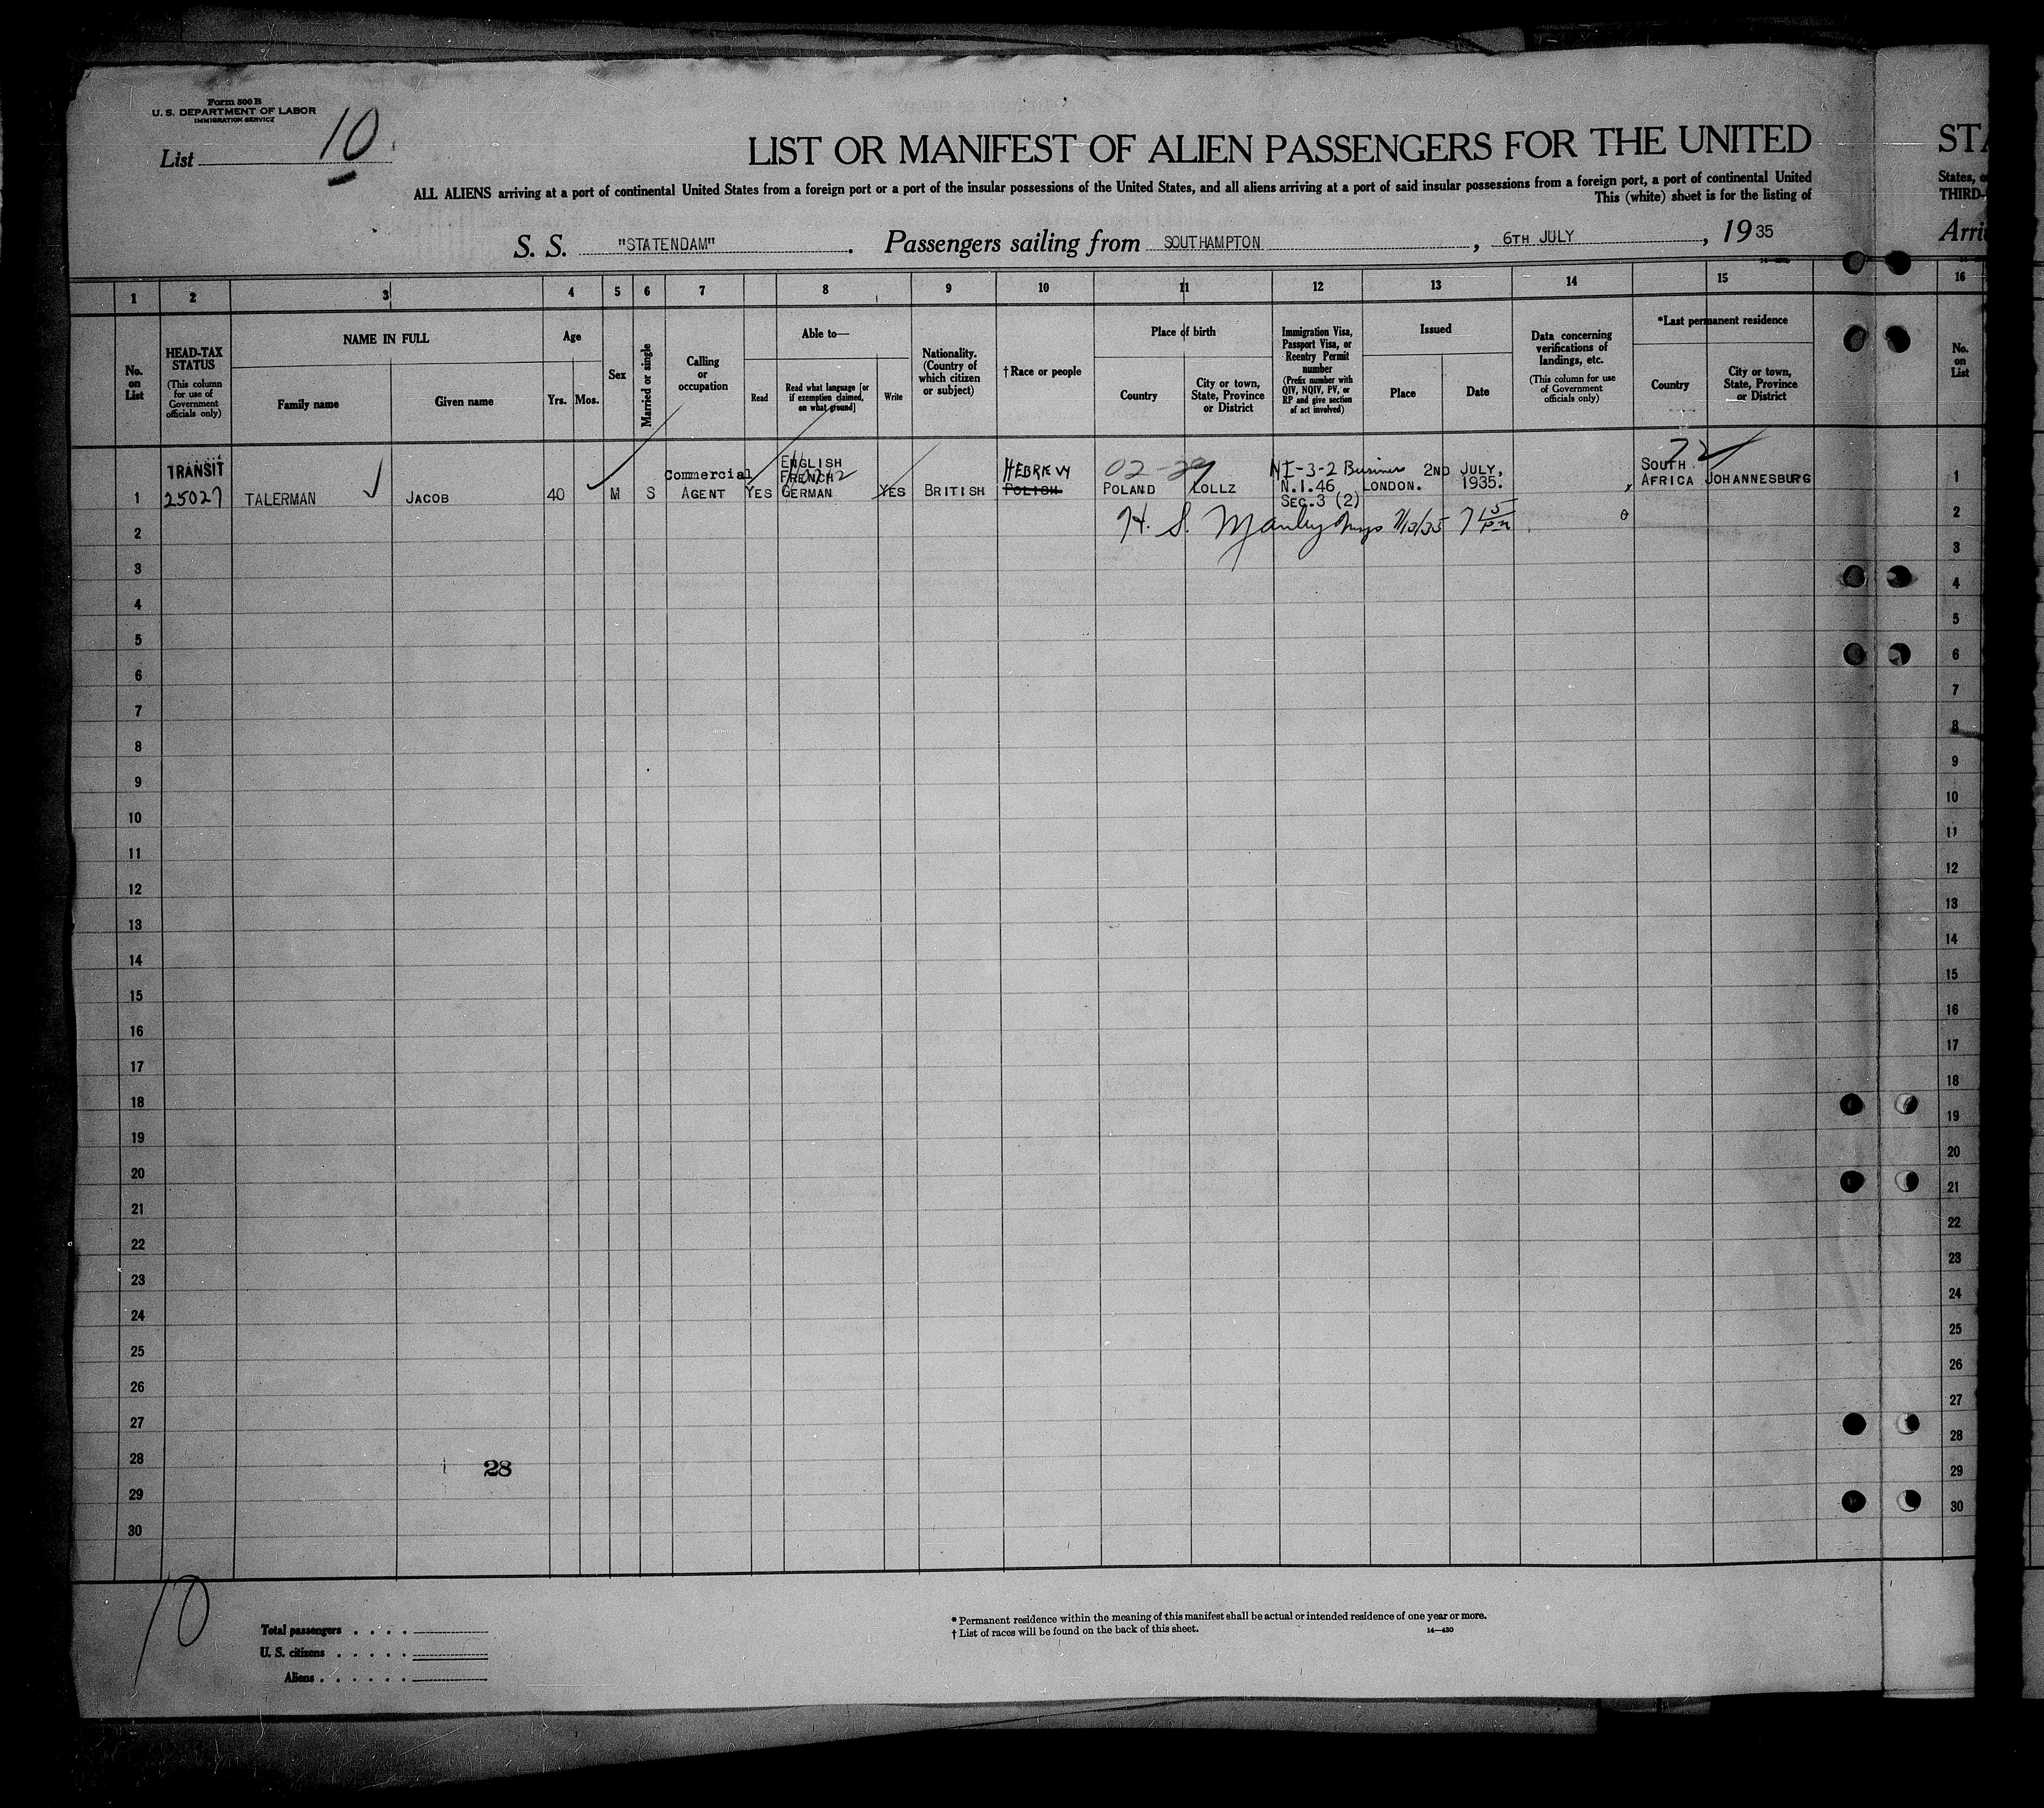 Form 500 B
U. S. DEPARTMENT OF LABOR
IMMIGRATION SERVICE
List 10.
LIST OR MANIFEST OF ALIEN PASSENGERS FOR THE UNITED
STA
ALL ALIENS arriving at a port of continental United States from a foreign port or a port of the insular possessions of the United States, and all aliens arriving at a port of said insular possessions from a foreign port, a port of continental United
States, o
This (white) sheet is for the listing of
THIRD-
S. S. "STATENDAM". Passengers sailing from SOUTHAMPTON, 6TH JULY, 1935
Arri
1 2 3 4 5 6 7 8 9 10 11 12 13 14 15 16
No. on List
HEAD-TAX STATUS
(This column for use of Government officials only)
NAME IN FULL
Family name
Given name
Age
Yrs. Mos.
Sex
Married or single
Calling or occupation
Able to—
Read
Read what language [or if exemption claimed, on what ground]
Write
Nationality. (Country of which citizen or subject)
† Race or people
Place of birth
Country
City or town, State, Province or District
Immigration Visa, Passport Visa, or Reentry Permit number
(Prefix number with QIV, NQIV, PV, or RP and give section of act involved)
Issued
Place
Date
Data concerning verifications of landings, etc.
(This column for use of Government officials only)
*Last permanent residence
Country
City or town, State, Province or District
No. on List
TRANSIT
ENGLISH
FRENCH
HEBREW
02-29
NI-3-2 Business
2ND JULY,
72
SOUTH
1 25027 TALERMAN JACOB 40 M S Commercial AGENT YES GERMAN YES BRITISH POLISH POLAND LOLLZ N.I.46 LONDON. 1935. AFRICA JOHANNESBURG 1
SEC.3 (2)
H. S. Manley 7/13/35 7 15 PM
2 2
3 3
4 4
5 5
6 6
7 7
8 8
9 9
10 10
11 11
12 12
13 13
14 14
15 15
16 16
17 17
18 18
19 19
20 20
21 21
22 22
23 23
24 24
25 25
26 26
27 27
28 28 28
29 29
30 30
10
Total passengers . . . .
U. S. citizens . . . . .
Aliens . . . . . .
* Permanent residence within the meaning of this manifest shall be actual or intended residence of one year or more.
† List of races will be found on the back of this sheet.
14—430